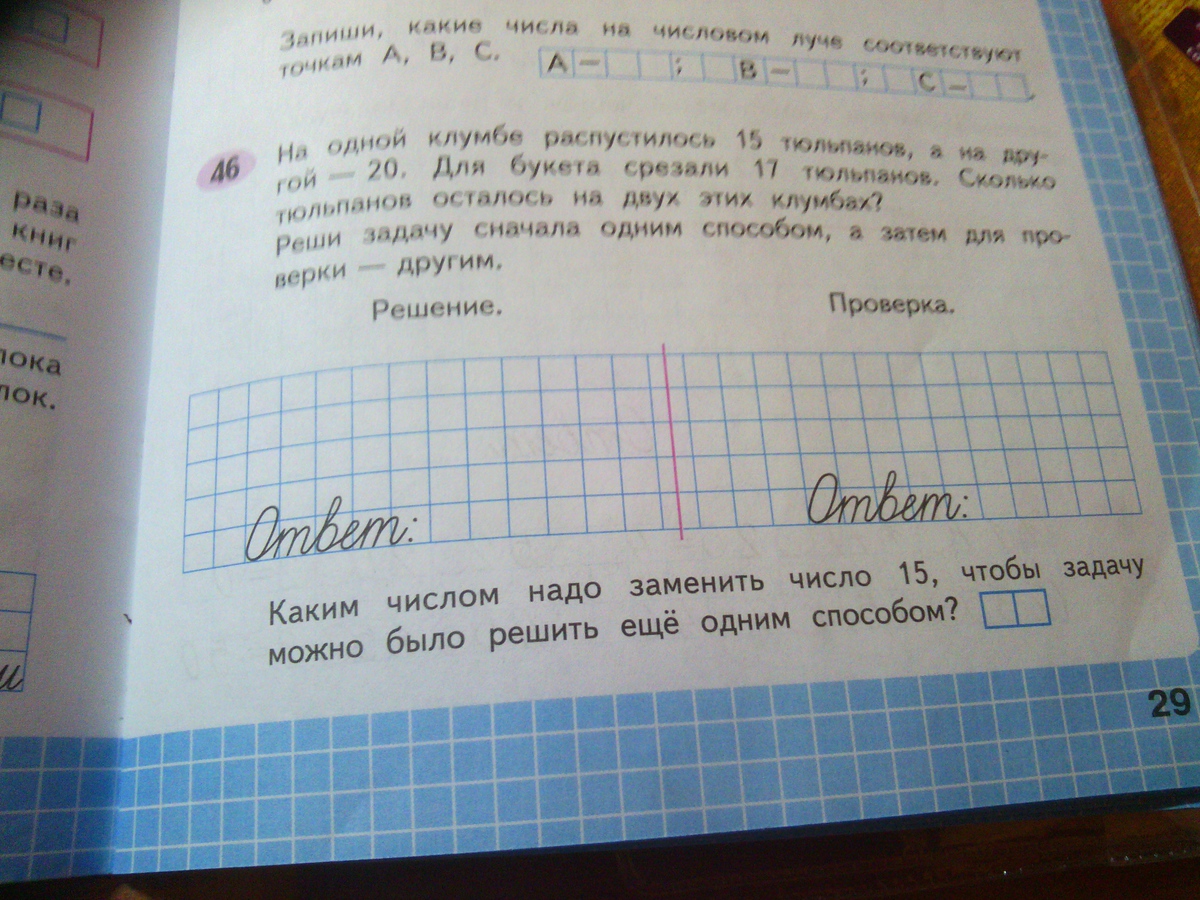 раза
книг
есте.
лока
лок.
и
Запиши, какие числа на числовом луче соответствуют
точкам А, В, С. А – ; В – ; С – .
46 На одной клумбе распустилось 15 тюльпанов, а на дру-
гой — 20. Для букета срезали 17 тюльпанов. Сколько
тюльпанов осталось на двух этих клумбах?
Реши задачу сначала одним способом, а затем для про-
верки — другим.
Решение. Проверка.
Ответ: Ответ:
Каким числом надо заменить число 15, чтобы задачу
можно было решить ещё одним способом?
29